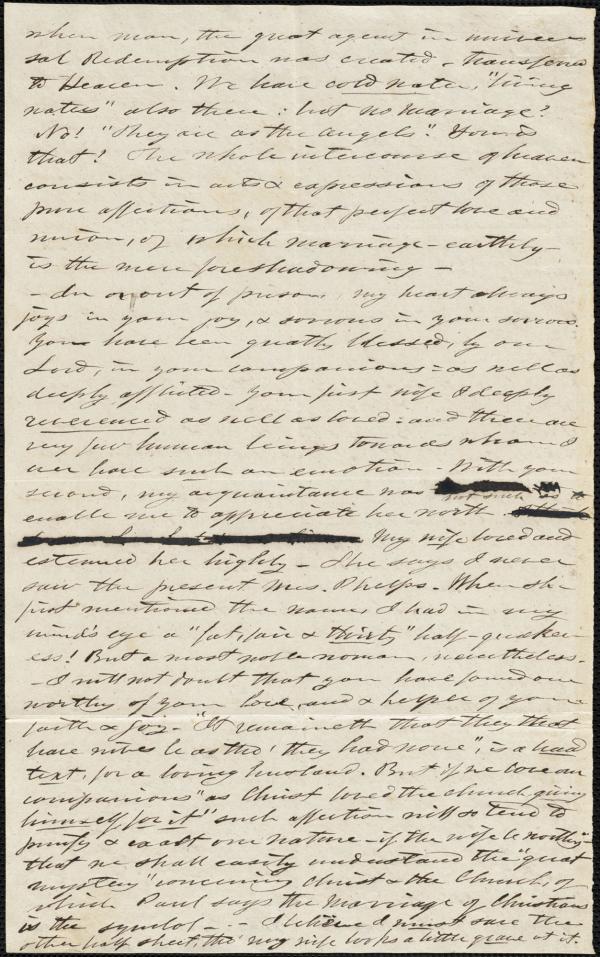 when man, the great agent in univer-
sal Redemption was created - transferred
to Heaven. We have cold water, "living
water" also there: but no marriage?
No! "They are as the angels". How is
that? The whole intercourse of heaven
consists in acts & expressions of those
pure affections, of that perfect love and
union, of which marriage - earthly -
is the mere foreshadowing -
- In or out of prison, my heart always
joys in your joy, & sorrows in your sorrow.
You have been greatly blessed, by our
Lord, in your companions: as well as
deeply afflicted - Your first wife I deeply
reverenced as well as loved: and there are
very few human beings towards whom I
ever have such an emotion - With your
second, my acquaintance was not such as to
enable me to appreciate her worth -
My wife loved and
esteemed her highly - She says I never
saw the present Mrs. Phelps. When she
first mentioned the name, I had in my
mind's eye a "fat, fair & thirty" half-quaker-
ess! But a most noble woman, nevertheless.
- I will not doubt that you have found one
worthy of your love, and a helper of your
faith & joy. "It remaineth that they that
have wives be as tho' they had none", is a hard
text, for a loving husband. But if we love our
companions "as Christ loved the church, giving
himself for it" such affection will so tend to
purify & exalt our nature - if the wife be worthy -
that we shall easily understand the "great
mystery" concerning Christ & the Church, of
which Paul says the marriage of Christians
is the symbol - - I believe I must save the
other half sheet, tho' my wife looks a little grave at it.